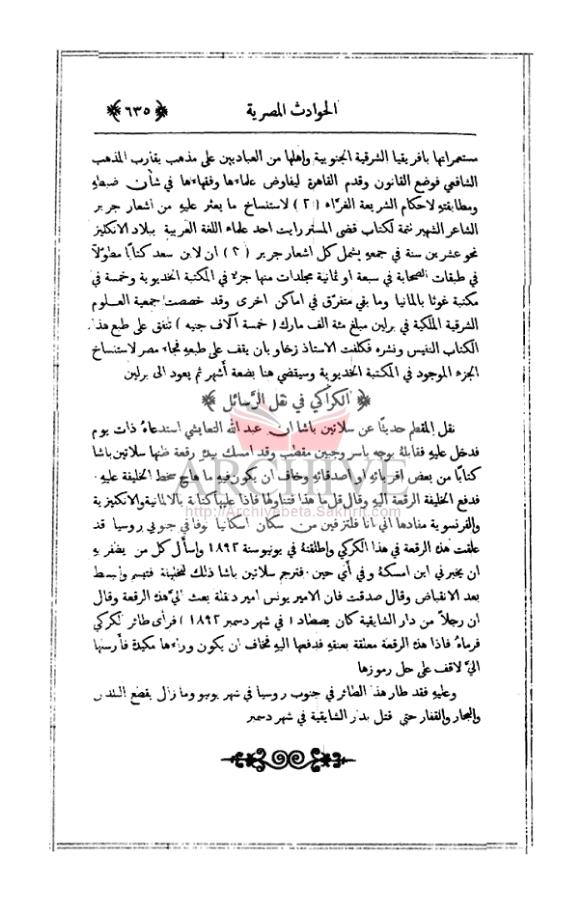 الحوادث المصرية ﴿ ٦٣٥ ﴾
مستعمراتها بافريقيا الشرقية الجنوبية واهلها من العباديين على مذهب يقارب المذهب
الشافعي فوضع القانون وقدم القاهرة ليفاوض علماءها وفقهاءها في شأن ضبطه
ومطابقته لاحكام الشريعة الغراء (٢) لاستنساخ ما يعثر عليه من اشعار جرير
الشاعر الشهير تتمة لكتاب قضى المستر رايت احد علماء اللغة العربية ببلاد الانكليز
نحو عشرين سنة في جمعه يشمل كل اشعار جرير (٢) ان لابن سعد كتابًا مطوّلاً
في طبقات الصحابة في سبعة او ثمانية مجلدات منها جزء في المكتبة الخديوية وخمسة في
مكتبة غوثا بالمانيا وما بقي متفرق في اماكن اخرى وقد خصصت جمعية العلوم
الشرقية الملكية في برلين مبلغ مئة الف مارك (خمسة آلاف جنيه) تنفق على طبع هذا
الكتاب النفيس ونشره فكلفت الاستاذ زخاو بان يقف على طبعه فجاء مصر لاستنساخ
الجزء الموجود في المكتبة الخديوية وسيقضي هنا بضعة أشهر ثم يعود الى برلين
﴿ الكراكي في نقل الرسائل ﴾
نقل المقطم حديثًا عن سلاتين باشا ان عبد الله التعايشي استدعاهُ ذات يوم
فدخل عليه فقابلهُ بوجه باسر وجبين مقطب وقد امسك بيده رقعة ظنها سلاتين باشا
كتابًا من بعض اقربائه او اصدقائه وخاف ان يكون فيه ما هاج سخط الخليفة عليه
فدفع الخليفة الرقعة اليه وقال قل ما هذا فتناولها فاذا عليها كتابة بالالمانية والانكليزية
والفرنسوية مفادها اني انا فلتزفين من سكان اسكانيا نوفا في جنوبي روسيا قد
علقت هذه الرقعة في هذا الكركي واطلقتهُ في يونيو سنة ١٨٩٢ واسأل كل من يظفر به
ان يخبرني اين امسكهُ وفي أي حين. فترجم سلاتين باشا ذلك للخليفة فتبسم وانبسط
بعد الانقباض وقال صدقت فان الامير يونس امير دنقلة بعث اليّ هذه الرقعة وقال
ان رجلاً من دار الشايقية كان يصطاد (في شهر دسمبر ١٨٩٢) فرأى طائر الكركي
فرماهُ فاذا هذه الرقعة معلقة بعنقه فدفعها اليه فخاف ان يكون وراءها مكيدة فأرسلها
اليّ لاقف على حل رموزها
وعليه فقد طار هذا الطائر في جنوب روسيا في شهر يونيو وما زال يقطع البلدان
والبحار والقفار حتى قتل بدار الشايقية في شهر دسمبر
ARCHIVE
http://Archivebeta.Sakhrit.com